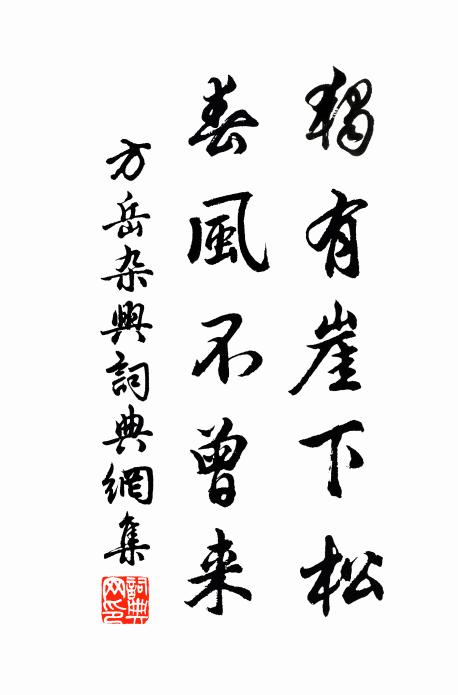 獨有崖下松
春風不曾来
方岳杂興詞典網集
詞典
网印